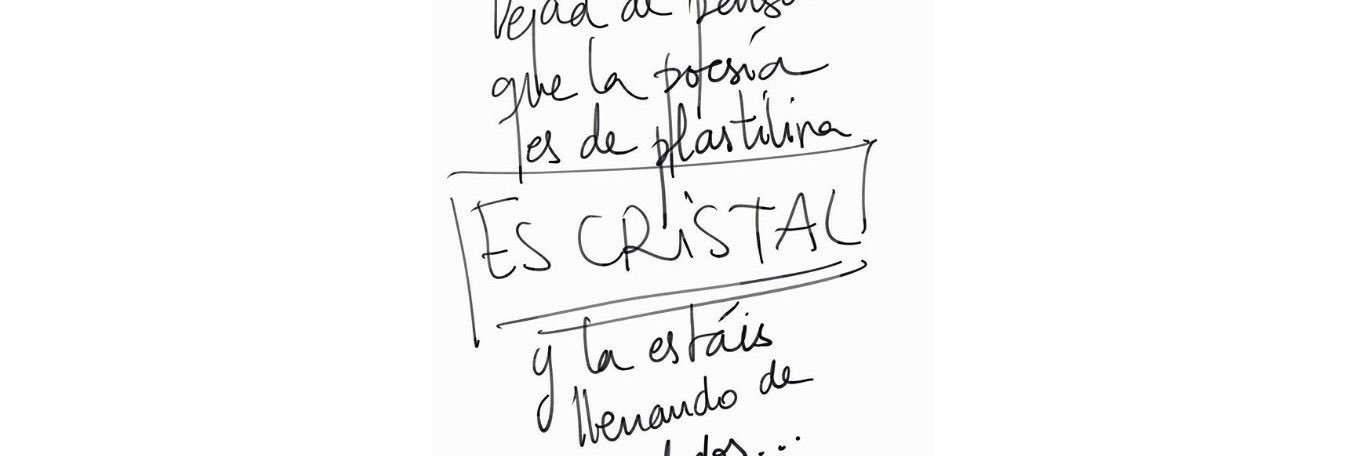 Dejad de pensa
que la poesía
es de plastilina
ES CRiSTAL
y la estáis
llenando de